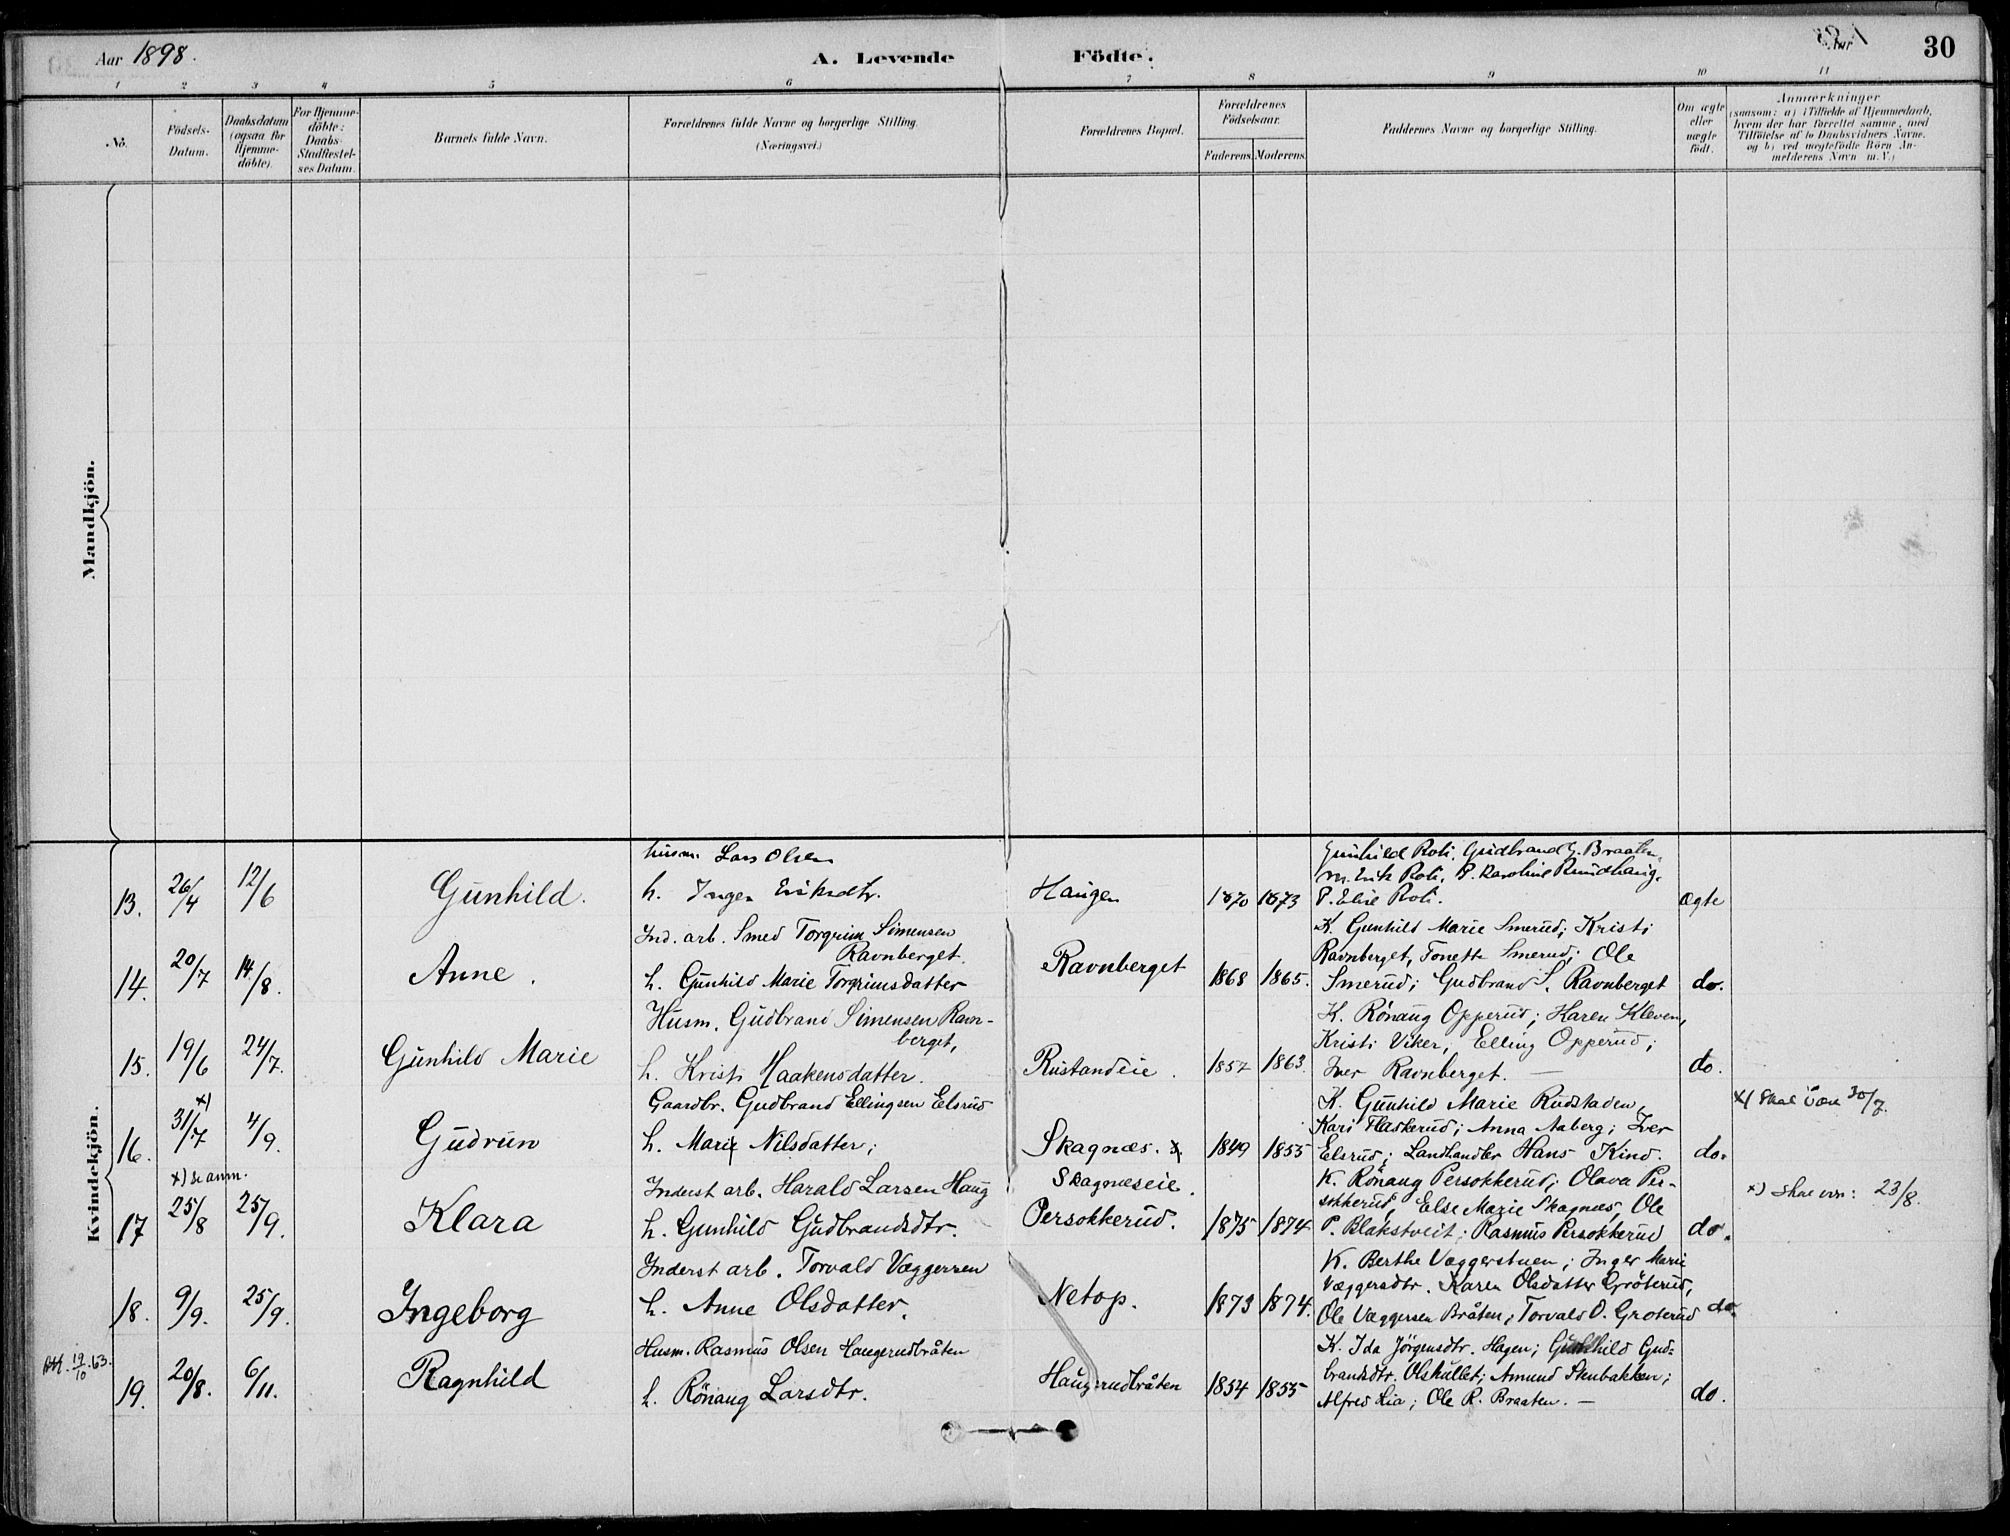 Aar 1898.
A. Levende Födte.
Aar
30
1 2 3 4 5 6 7 8 9 10 11
No.
Födsels-
Datum.
Daabsdatum
(ogsaa for
Hjemme-
döbte).
For Hjemme-
döbte:
Daabs-
Stadfæstel-
ses Datum.
Barnets fulde Navn.
Forældrenes fulde Navne og borgerlige Stilling.
(Næringsvei.)
Forældrenes Bopæl.
Forældrenes
Födselsaar.
Faderens. Moderens.
Faddernes Navne og borgerlige Stilling.
Om ægte
eller
uægte
födt.
Anmærkninger
(saasom: a) i Tilfælde af Hjemmedaab,
hvem der har forrettet samme, med
Tilföielse af to Daabsvidners Navne.
og b) ved uægtefödte Börn An-
melderens Navn m. V.)
Mandkjön.
Kvindekjön.
husm. Lars Olsen
13. 26/4 12/6 Gunhild. h. Inger Eriksdtr. Haugen 1870 1873
Gunhild Roti, Gudbrand G. Braaten,
m. Erik Roti, P. Karoline Rundhaug,
P. Elise Roti. ægte
Ind. arb. Smed Torgrim Simensen
Ravnberget.
14. 20/7 14./8. Anne. h. Gunhild Marie Torgrimsdatter Ravnberget 1868 1865.
K. Gunhild Marie Smerud; Kristi
Ravnberget, Tonette Smerud; Ole
Smerud; Gudbrand S. Ravnberget do.
Husm. Gudbrand Simensen Ravn-
berget,
15. 19/6 24/7. Gunhild Marie h. Kristi Haakensdatter. Rustandeie. 1857 1863.
K. Rönaug Opperud; Karen Kleven,
Kristi Viker, Elling Opperud;
Iver Ravnberget. — do.
Gaardbr. Gudbrand Ellingsen Elsrud
16. 31/7 x) 4/9. Gudrun h. Marie Nilsdatter; Skagnæs. x 1849 1855
K. Gunhild Marie Rudstaden,
Kari Flaskerud; Anna Aaberg; Iver
Elsrud; Landhandler Hans Kind. do.
x) Skal være 30/7.
x) se anm.
Inderst arb. Harald Larsen Haug Skagnæseie.
17 25/8 25/9. Klara h. Gunhild Gudbrandsdtr. Persokkerud. 1875 1874
K. Rönaug Persokkerud; Olava Per-
sokkerud, Else Marie Skagnæs, Ole
P. Blakstveit; Rasmus Persokkerud do.
x) skal være: 23/8.
Inderst arb. Torvald Væggersen
18. 9/9. 25/9. Ingeborg h. Anne Olsdatter. Netop. 1873 1874.
K. Berthe Væggerstuen; Inger Marie
Væggersdtr. Karen Olsdatter Gröterud,
Ole Væggersen Bråten, Torvald O. Groterud do.
Husm. Rasmus Olsen Haugerudbråten
Att. 19/10.63.
19. 20/8. 6/11. Ragnhild h. Rönaug Larsdtr. Haugerudbråten 1854 1855
K. Ida Jörgensdtr. Hagen; Gunhild Gud-
brandsdtr. Olshullet; Amund Stubakken;
Alfred Lia; Ole R. Braaten. — do.